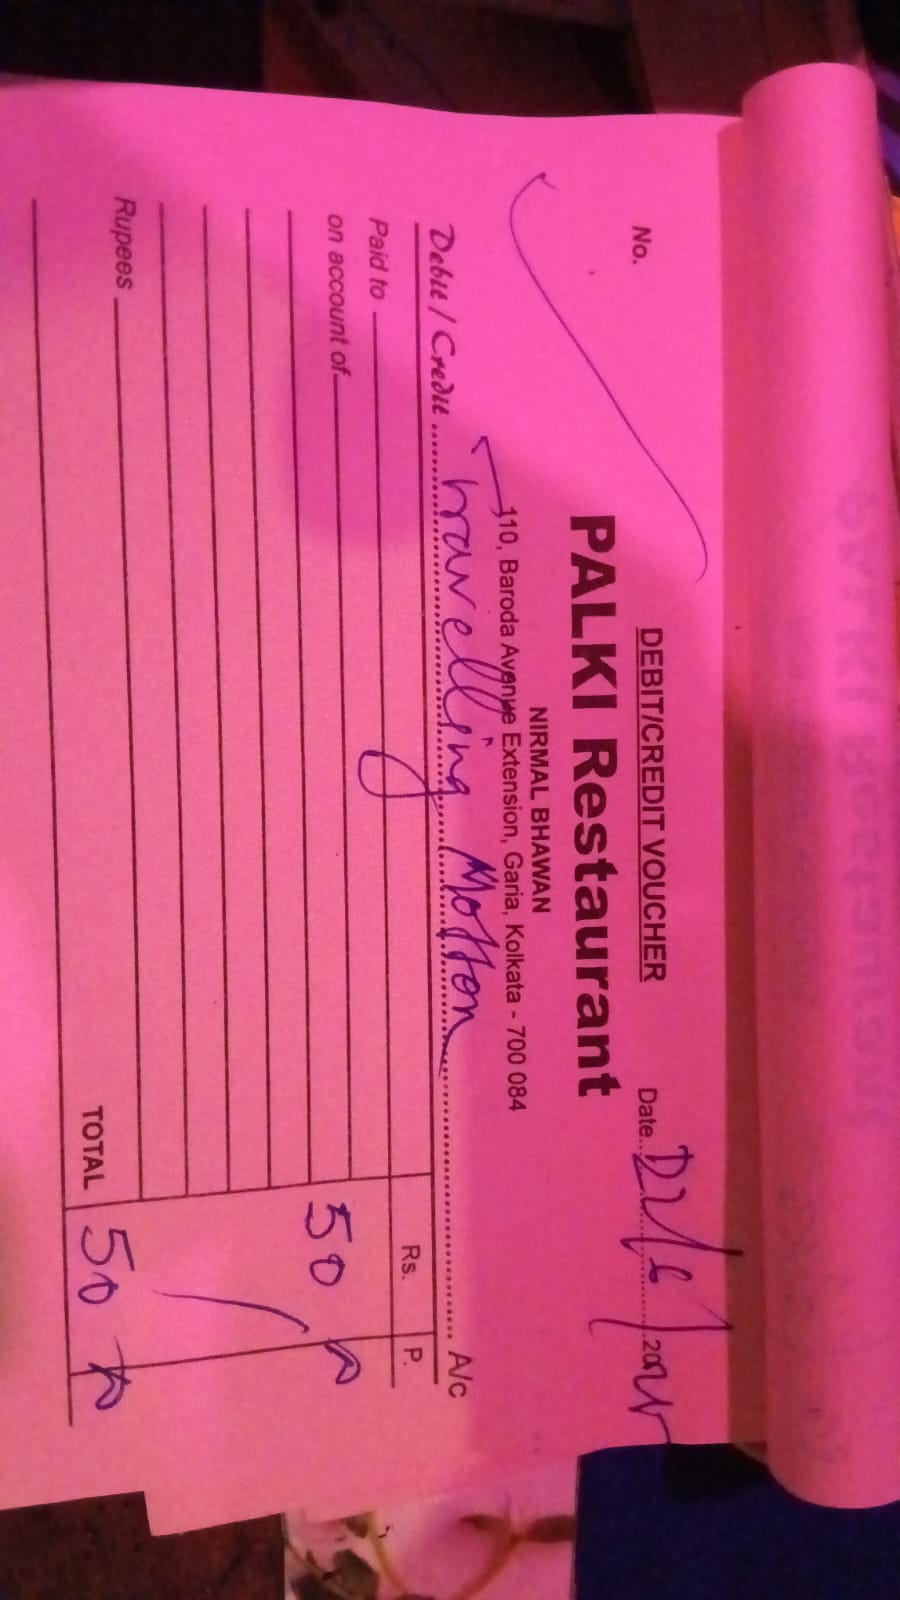 DEBIT/CREDIT VOUCHER
No. Date 20
PALKI Restaurant
NIRMAL BHAWAN
110, Baroda Avenue Extension, Garia, Kolkata - 700 084
Debit / Credit travelling Motton A/c
Rs. P.
Paid to
on account of 50
Rupees
TOTAL 50